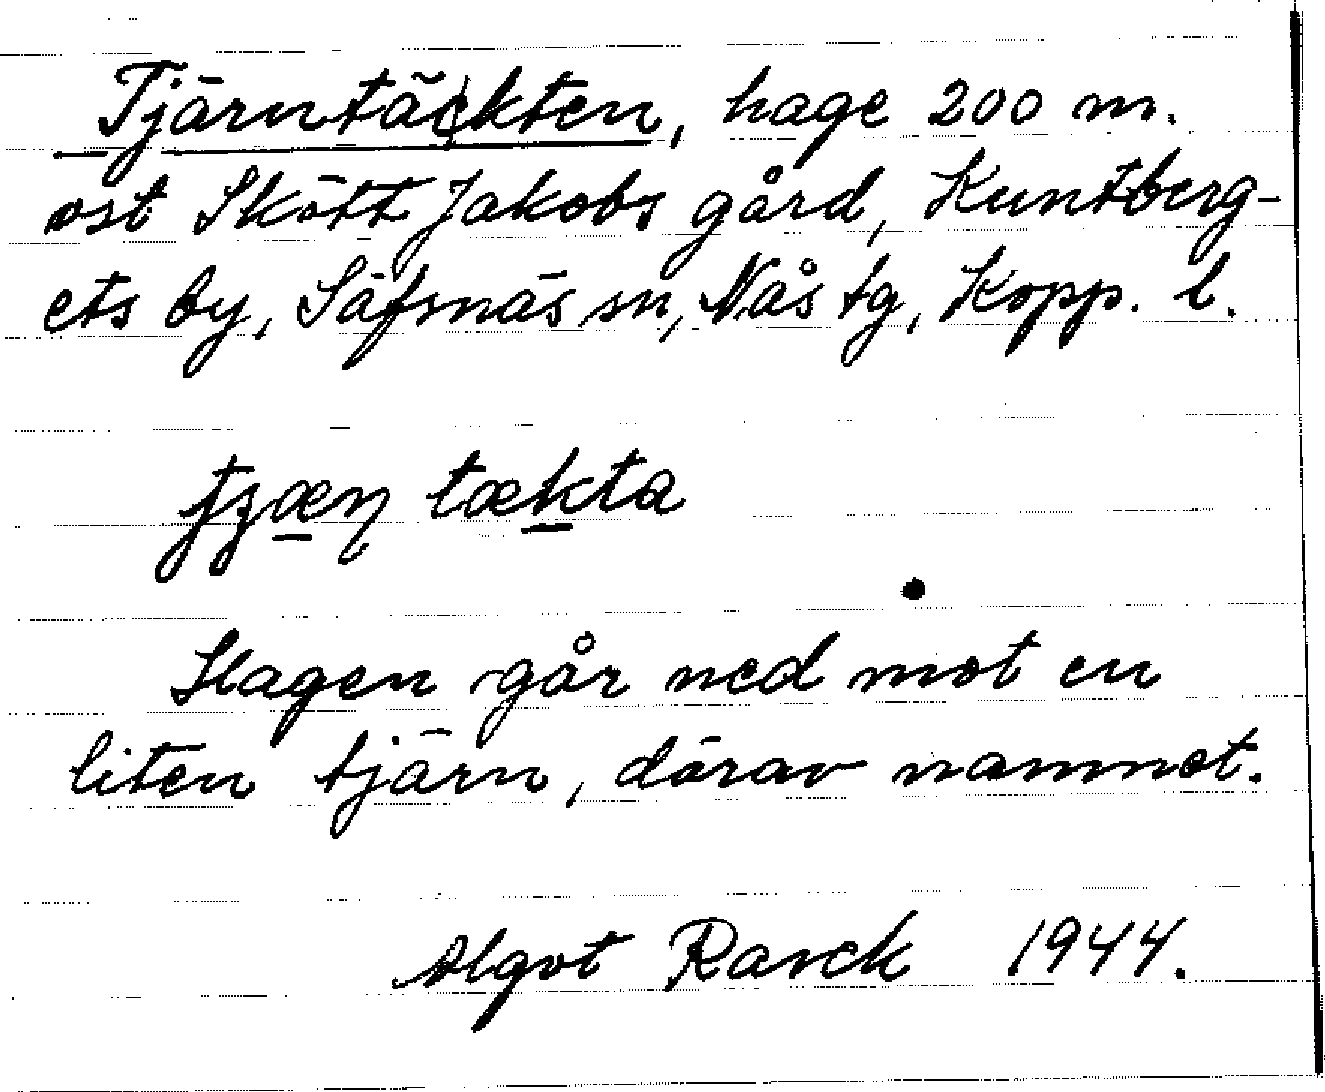 Tjärntäckten, hage 200 m.
ost Skött Jakobs gård, Kuntberg-
ets by, Säfsnäs sn, Nås tg, Kopp. l.
tjæɳ tækta
Hagen går ned mot en
liten tjärn, därav namnet.
Algot Ravck 1944.